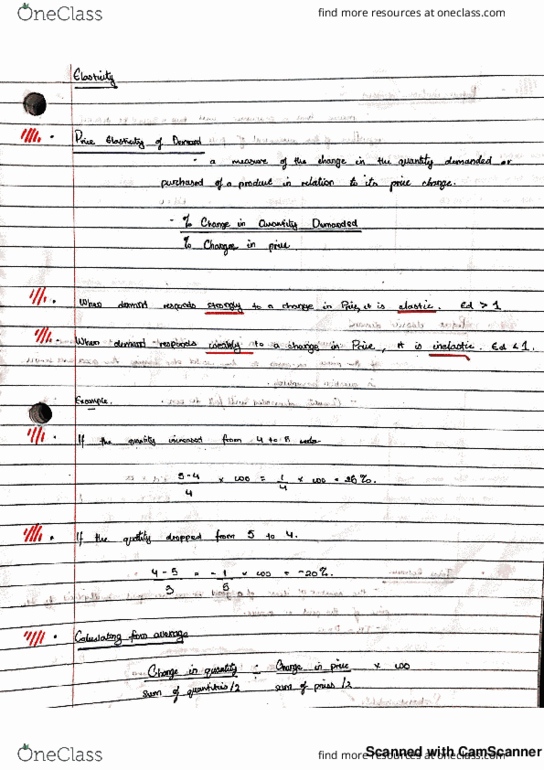 OneClass
find more resources at oneclass.com
Elasticity
Price Elasticity of Demand
- a measure of the change in the quantity demanded or
purchased of a product in relation to its price change.
- % Change in Quantity Demanded
% Change in price.
When demand responds strongly to a change in Price, it is elastic. Ed > 1
When demand responds weakly to a change in Price, it is inelastic. Ed < 1.
Example.
If the quantity increased from 4 to 5
5-4 × 100 = 1 × 100 =
4 4
If the quantity dropped from 5 to 4.
4-5 = -1 × 100 = -20%.
5
Calculating from average
Change in quantity ÷ Change in price × 100
sum of quantities/2 sum of prices/2
OneClass
find more resources at oneclass.com
Scanned with CamScanner